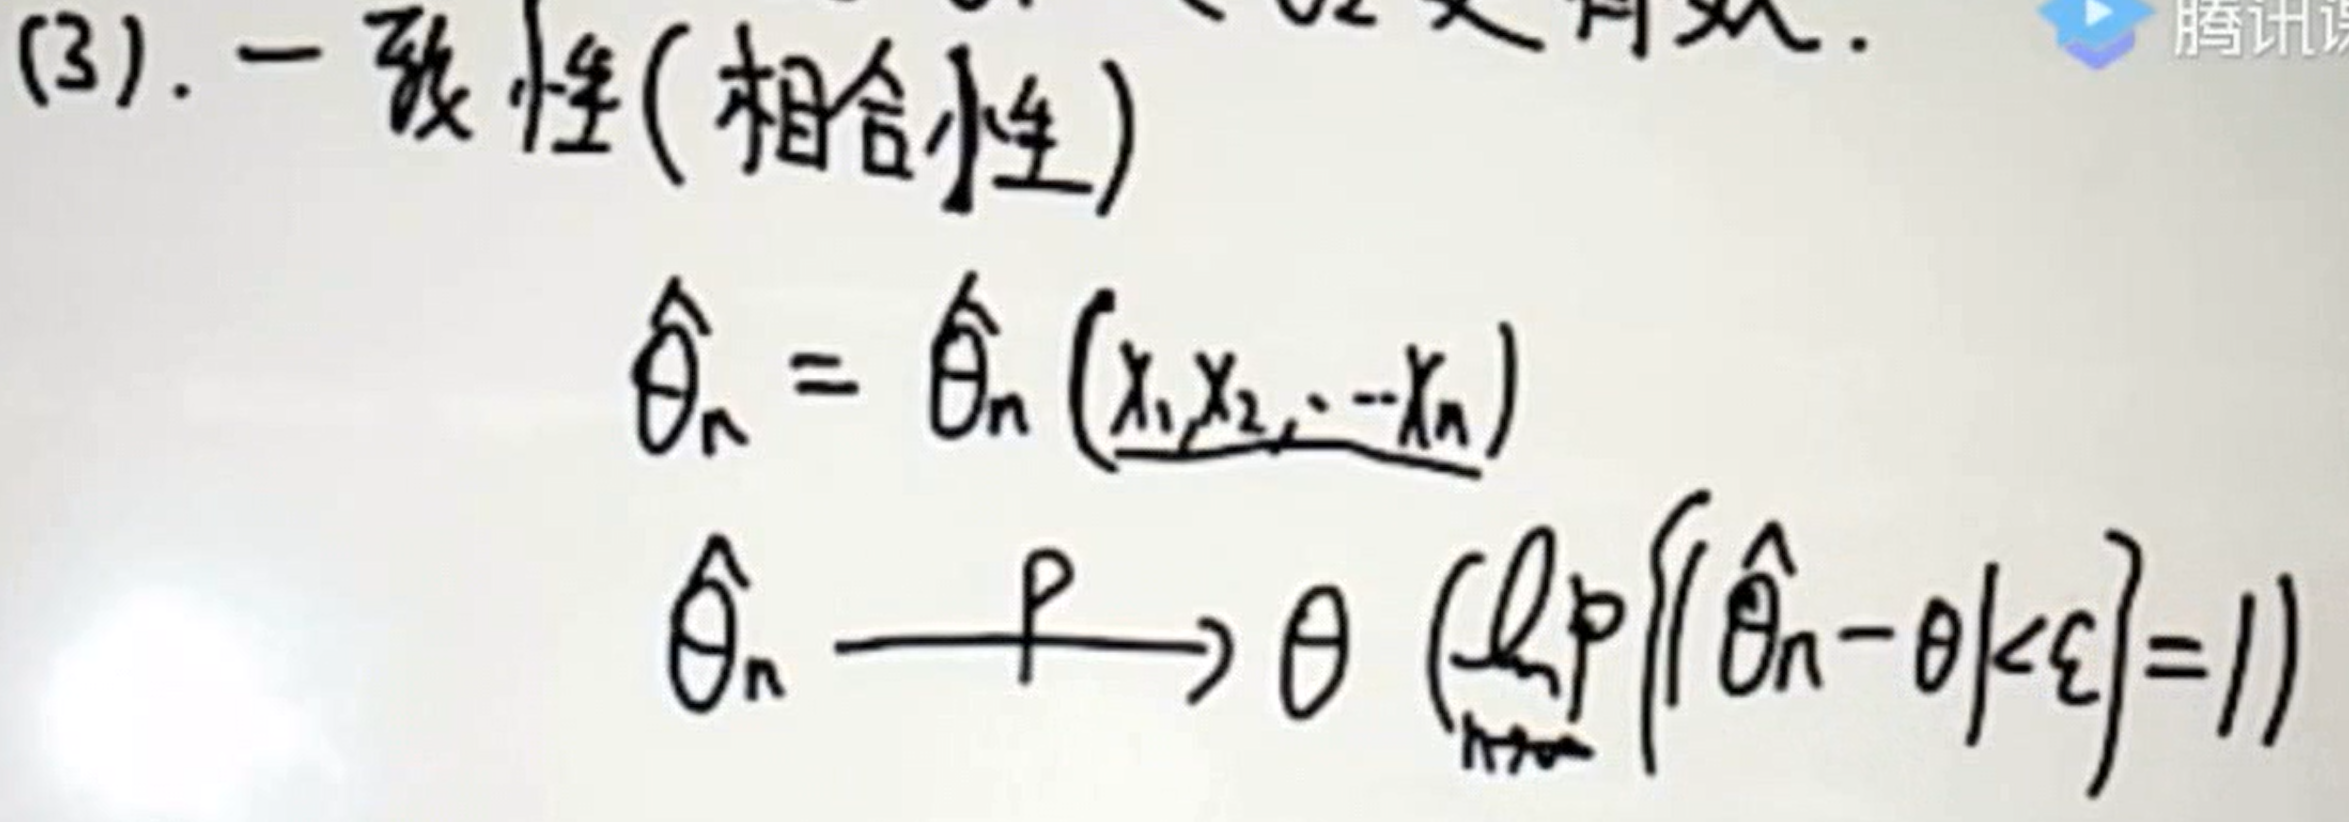 θ₂更有效.
腾讯课
(3). 一致性(相合性)
θ̂n = θ̂n (X₁,X₂,···Xn)
θ̂n —P→ θ (lim n→∞ P{|θ̂n-θ|<ε}=1)